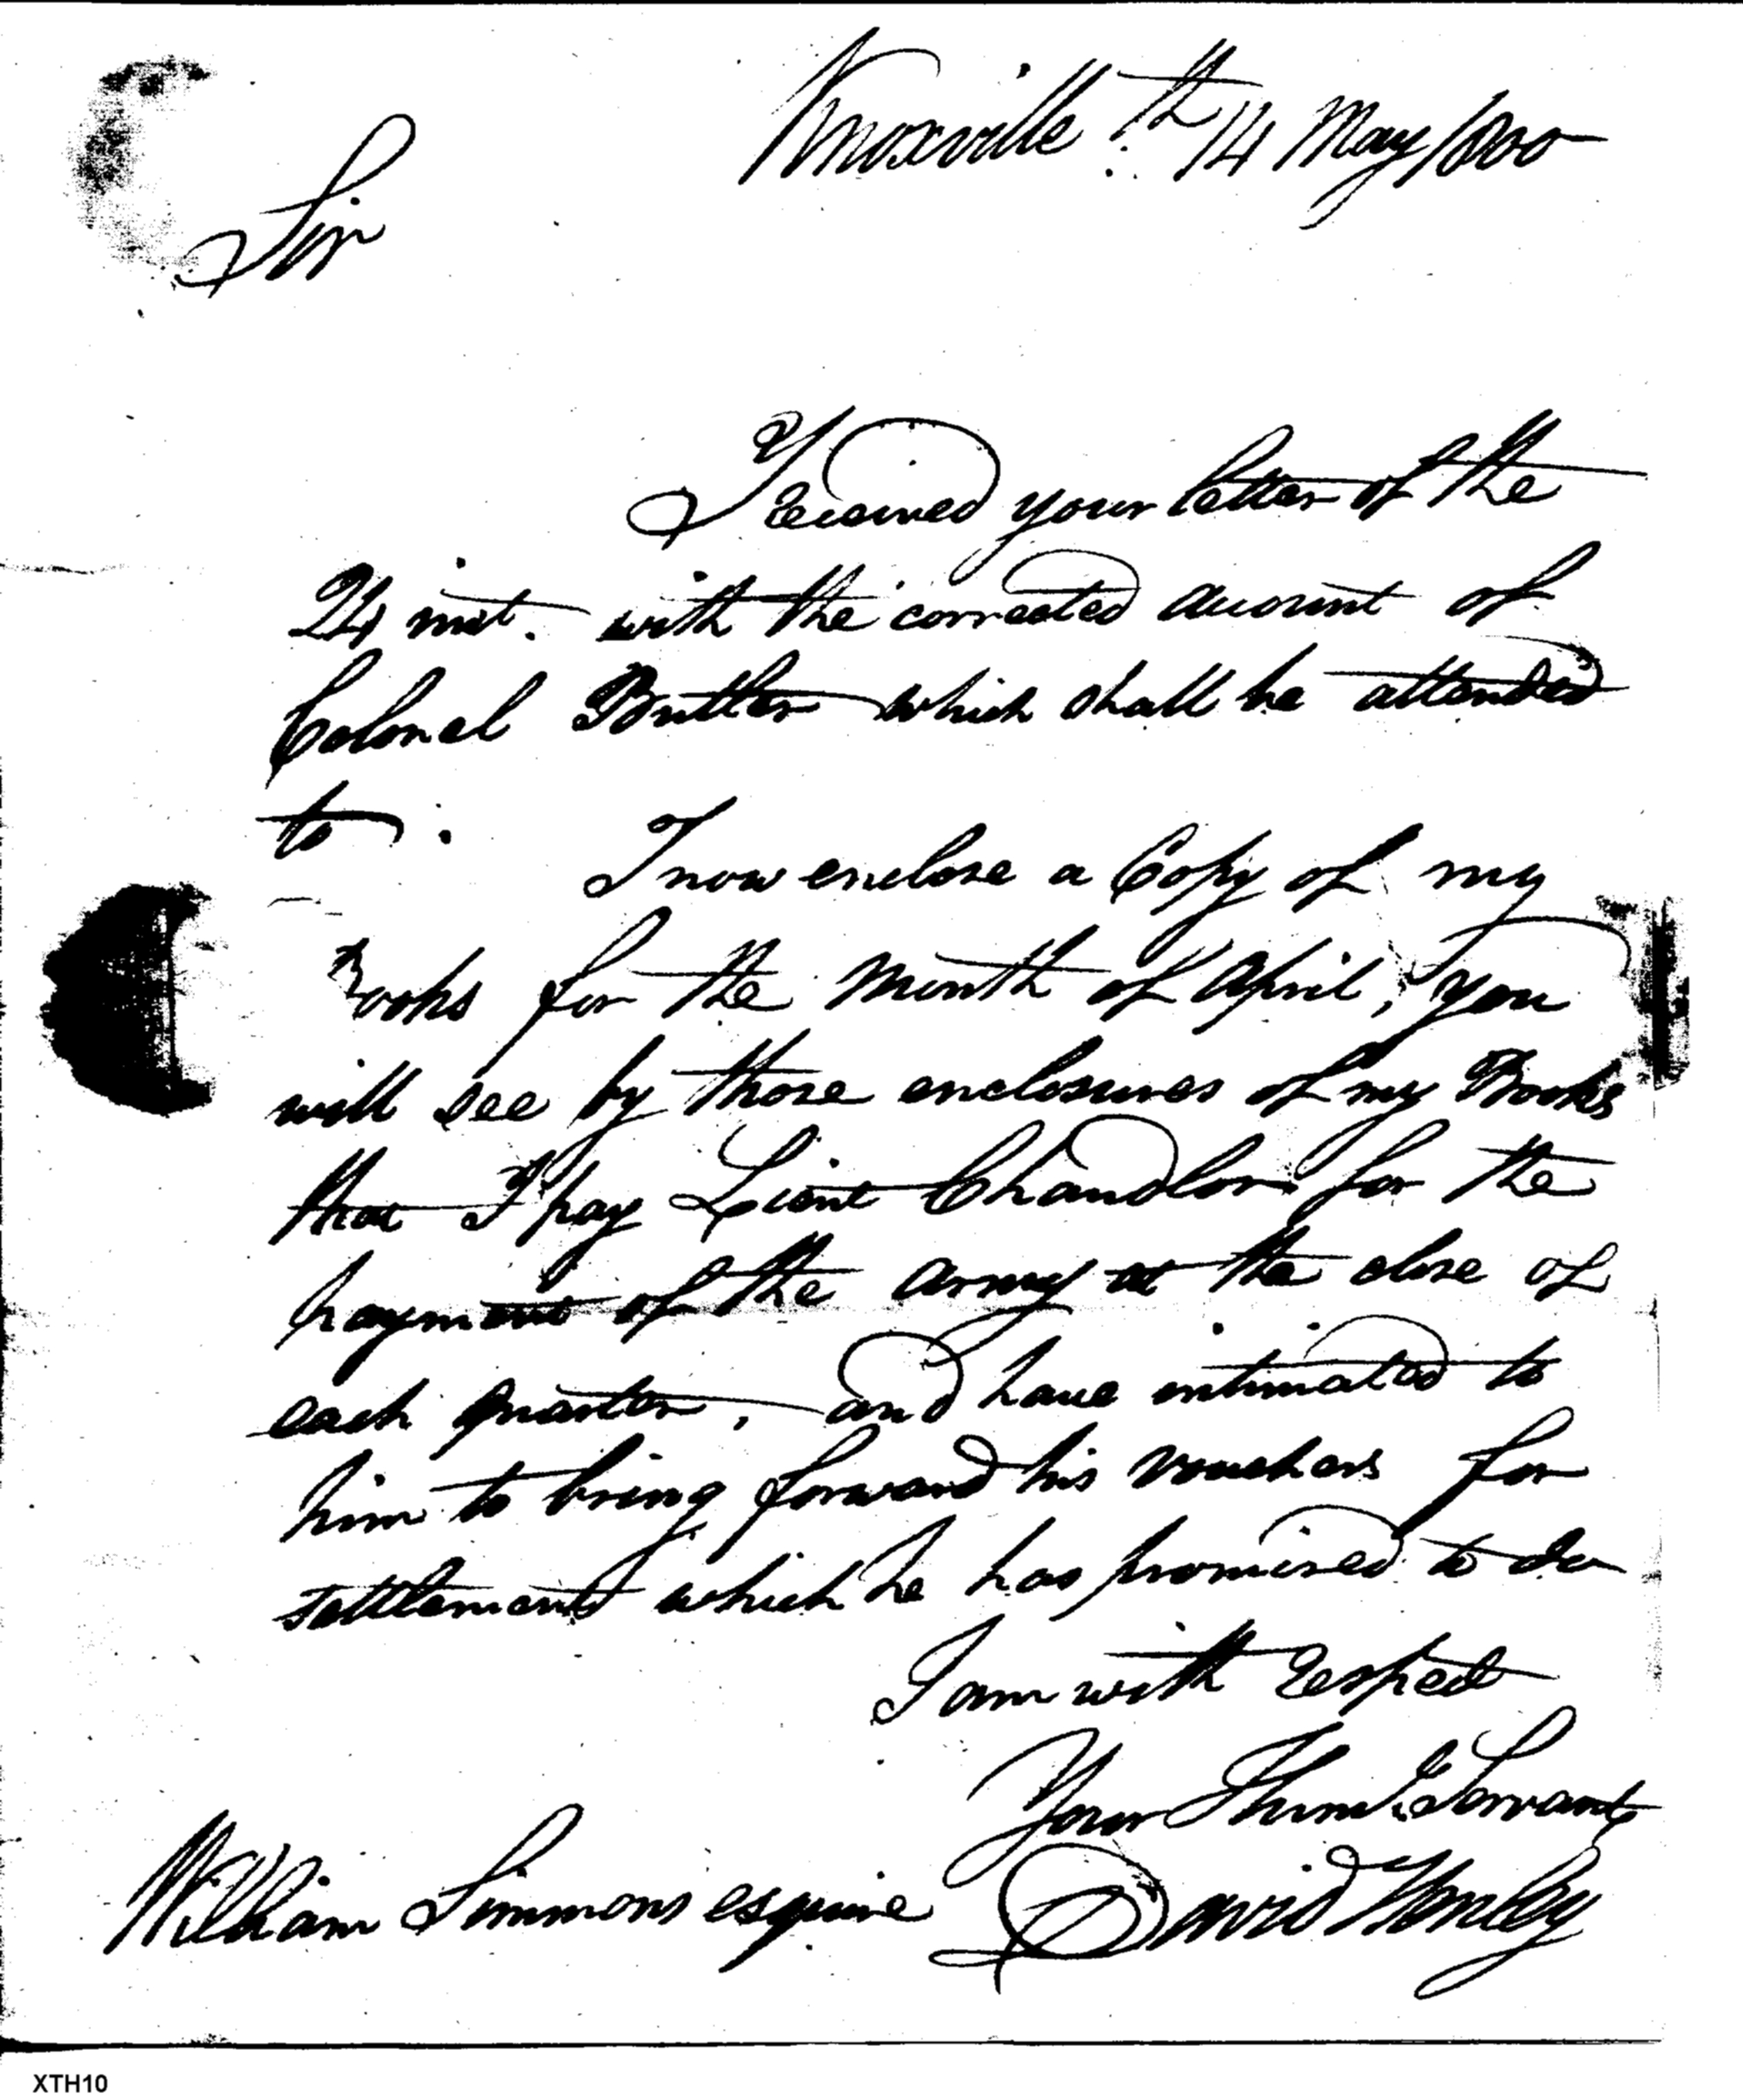 Knoxville th 14 May 1800
Sir
I Received your letter of the
24 inst. with the corrected account of
Colonel Butler which shall be attended
to :
I now enclose a Copy of my
Books for the Month of April, you
will see by those enclosures of my Books
that I pay Lieut Chandler for the
payment of the Army at the close of
each quarter, and have intimated to
him to bring forward his vouchers for
settlement which he has promised to do
I am with Respect
Your Hum. Servant
William Simmons esquire David Henley
XTH10